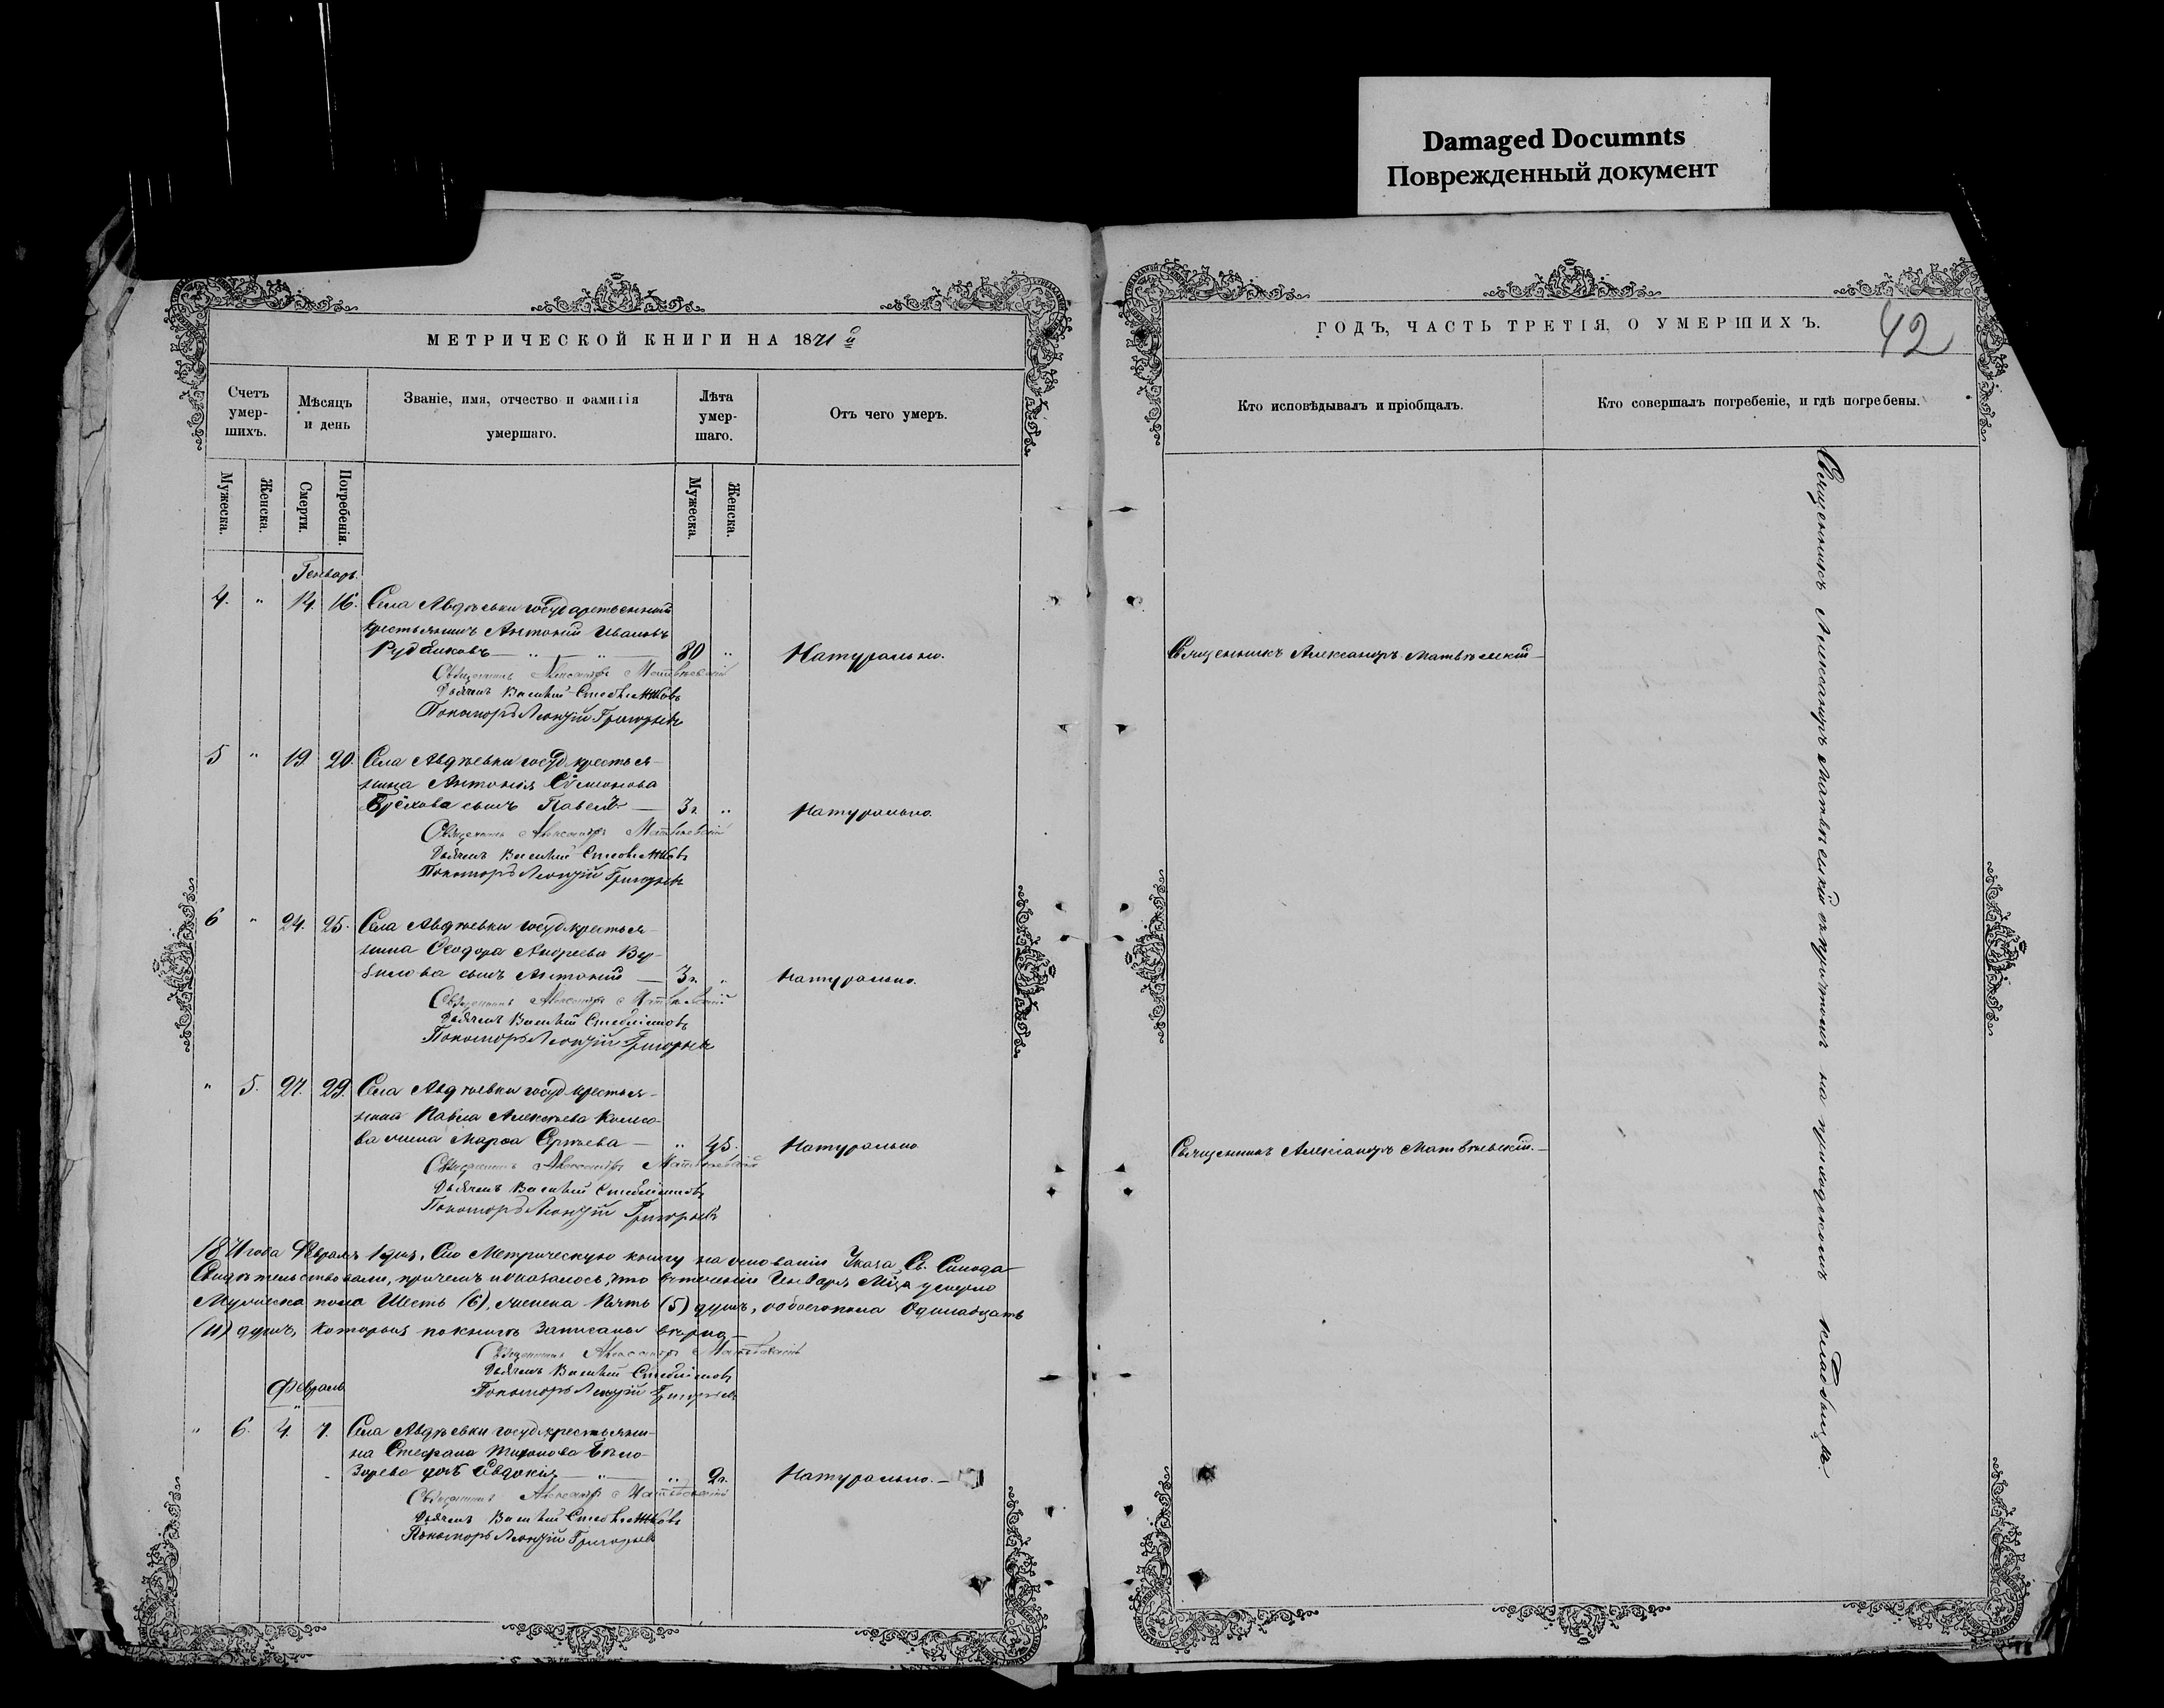 Damaged Documnts
Поврежденный документ
МЕТРИЧЕСКОЙ КНИГИ НА 1871 й
Счетъ умер-шихъ.
Мѣсяцъ и день
Званіе, имя, отчество и фамилія умершаго.
Лѣта умер-шаго.
Отъ чего умеръ.
Мужеска.
Женска.
Смерти.
Погребенія.
Мужеска.
Женска.
Генварь.
4. " 14. 16. Села Авдѣевки государственный
крестьянинъ Антоній Ивановъ
80 " Натурально.
Священникъ Александръ Матвѣевскій
Дьячекъ Василій
Пономарь Леонтій Григорьевъ
5 " 19. 20. Села Авдѣевки госуд. крестья-
нина Антонія Симонова
сынъ Павелъ — 3 г. " Натурально.
Священникъ Александръ Матвѣевскій
Дьячекъ Василій
Пономарь Леонтій Григорьевъ
6 " 24. 25. Села Авдѣевки госуд. крестья-
нина Ѳеодора Андреева
сынъ Антоній — 3 г. " Натурально.
Священникъ Александръ Матвѣевскій
Дьячекъ Василій
Пономарь Леонтій Григорьевъ
" 5. 27. 29. Села Авдѣевки госуд. крестья-
нина Павла Алексѣева
жена Марѳа Сергѣева — " 45. Натурально
Священникъ Александръ Матвѣевскій
Дьячекъ Василій
Пономарь Леонтій Григорьевъ
1871 года Февраля 1 дня, Сію Метрическую книгу на основаніи Указа Св. Синода
Свидѣтельствовали, причемъ оказалось, что въ теченіи Января Мца умерло
Мужеска пола Шесть (6), женска Пять (5) душъ, обоего пола Одинадцать
(11) душъ, которыя по книгѣ записаны вѣрно. —
Священникъ Александръ Матвѣевскій
Дьячекъ Василій
Пономарь Леонтій Григорьевъ
Февраль
" 6. 4. 7. Села Авдѣевки госуд. крестьяни-
на Стефана
дочь Евдокія — " 2 г. Натурально. —
Священникъ Александръ Матвѣевскій
Дьячекъ Василій
Пономарь Леонтій Григорьевъ
ГОДЪ, ЧАСТЬ ТРЕТІЯ, О УМЕРШИХЪ.
42
Кто исповѣдывалъ и пріобщалъ.
Кто совершалъ погребеніе, и гдѣ погребены.
Священникъ Александръ Матвѣевскій —
Священникъ Александръ Матвѣевскій. —
Священникъ Александръ Матвѣевскій съ причтомъ на приходскомъ кладбищѣ.